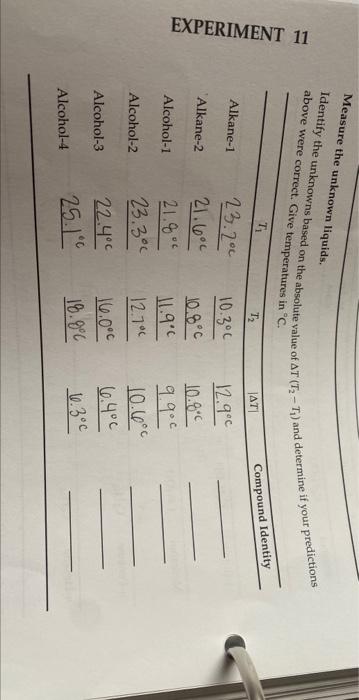 EXPERIMENT 11
Measure the unknown liquids.
Identify the unknowns based on the absolute value of ΔT (T₂ − T₁) and determine if your predictions
above were correct. Give temperatures in °C.
T₁ T₂ |ΔT| Compound Identity
Alkane-1 23.2°C 10.3°C 12.9°C
Alkane-2 21.6°C 10.8°C 10.8°C
Alcohol-1 21.8°C 11.9°C 9.9°C
Alcohol-2 23.3°C 12.7°C 10.6°C
Alcohol-3 22.4°C 16.0°C 6.4°C
Alcohol-4 25.1°C 18.8°C 6.3°C